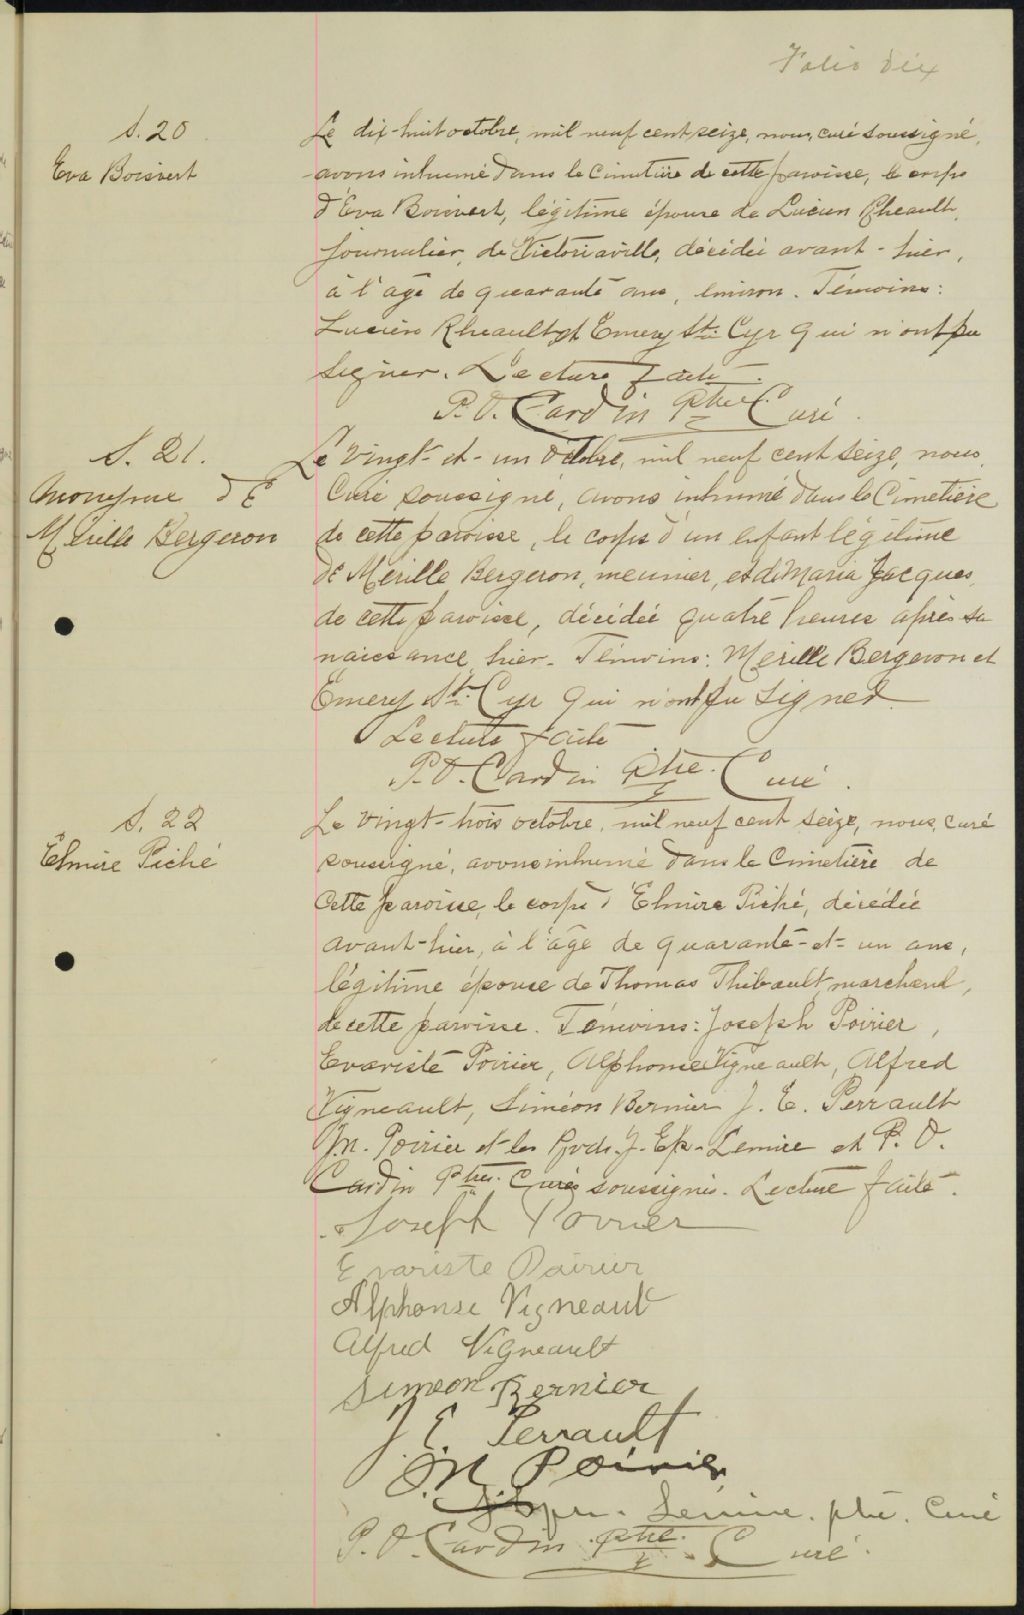 Folio dix
S. 20
Eva Boisvert
Le dix-huit octobre, mil neuf cent seize, nous, curé soussigné,
avons inhumé dans le cimetière de cette paroisse, le corps
d'Eva Boisvert, légitime épouse de Lucien Rheault,
journalier, de Victoriaville, décédée avant-hier,
à l'âge de quarante ans, environ. Témoins:
Lucien Rheault et Emery St. Cyr qui n'ont pu
signer. Lecture faite.
P. O. Cardin Ptre Curé.
S. 21.
Anonyme de
Mérille Bergeron
Le vingt-et-un octobre, mil neuf cent seize, nous,
Curé soussigné, avons inhumé dans le Cimetière
de cette paroisse, le corps d'un enfant légitime
de Mérille Bergeron, meunier, et de Maria Jacques,
de cette paroisse, décédée quatre heures après sa
naissance, hier. Témoins: Mérille Bergeron et
Emery St. Cyr qui n'ont pu signer.
Lecture faite
P. O. Cardin Ptre. Curé.
S. 22
Elmire Piché
Le vingt-trois octobre, mil neuf cent seize, nous, curé
soussigné, avons inhumé dans le Cimetière de
cette paroisse, le corps d'Elmire Piché, décédée
avant-hier, à l'âge de quarante-et-un ans,
légitime épouse de Thomas Thibault, marchand,
de cette paroisse. Témoins: Joseph Poirier,
Evariste Poirier, Alphonse Vigneault, Alfred
Vigneault, Siméon Bernier J. E. Perrault
J.N. Poirier et les Rvds. J. Ep. Lemire et P. O.
Cardin Ptres. Curés soussignés. Lecture faite.
Joseph Poirier
Evariste Poirier
Alphonse Vigneault
Alfred Vigneault
Simeon Bernier
J. E. Perrault
J.N. Poirier
Lemire, ptre. Curé
P. O. Cardin Ptre. Curé.